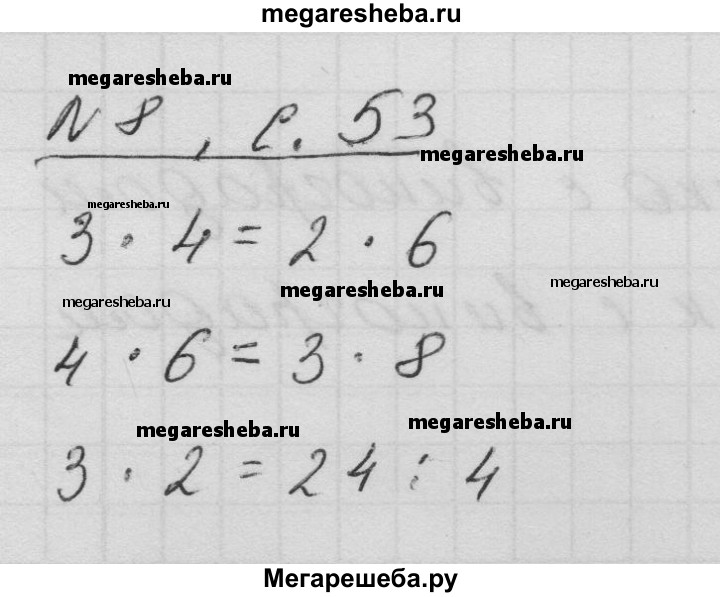 megaresheba.ru
megaresheba.ru
N 8, с. 53
megaresheba.ru
megaresheba.ru
3 · 4 = 2 · 6
megaresheba.ru
megaresheba.ru
megaresheba.ru
4 · 6 = 3 · 8
megaresheba.ru
megaresheba.ru
3 · 2 = 24 : 4
Мегарешеба.ру